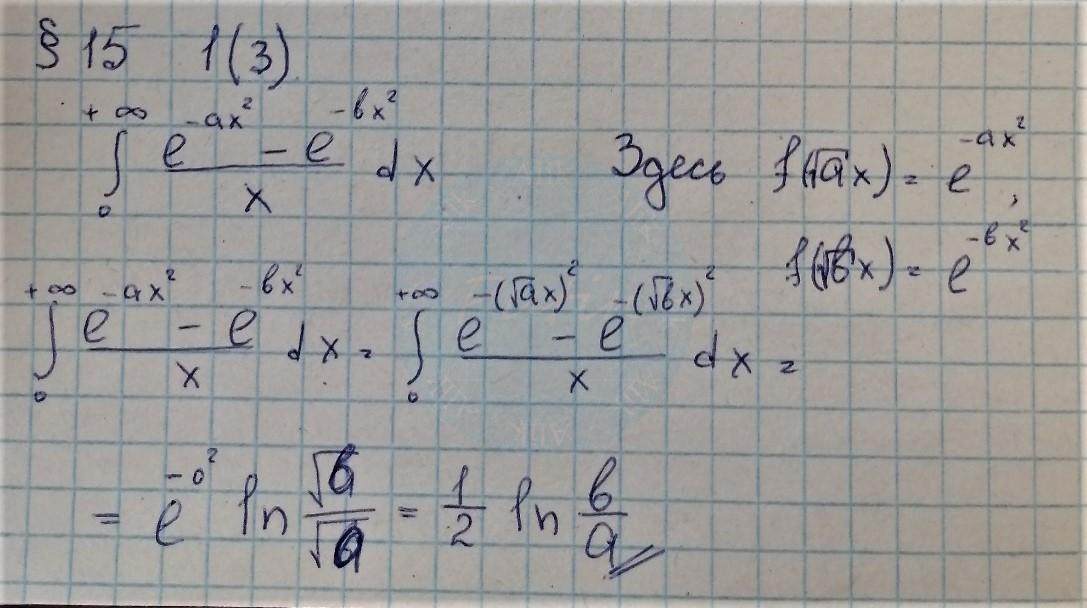 § 15 1(3)
∫₀^{+∞} (e^{-ax²} - e^{-bx²})/x dx Здесь f(√a x) = e^{-ax²},
f(√b x) = e^{-bx²}
∫₀^{+∞} (e^{-ax²} - e^{-bx²})/x dx = ∫₀^{+∞} (e^{-(√a x)²} - e^{-(√b x)²})/x dx =
= e^{-0²} ln √b/√a = 1/2 ln b/a